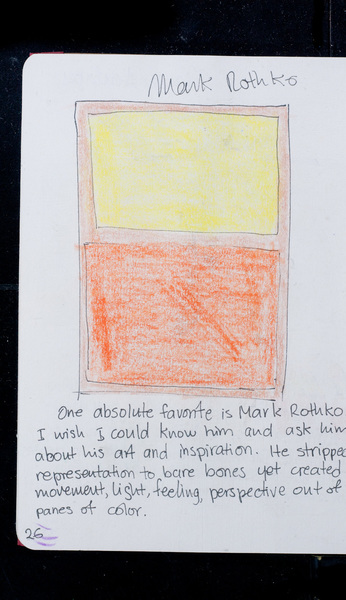 Mark Rothko
One absolute favorite is Mark Rothko
I wish I could know him and ask him
about his art and inspiration. He stripped
representation to bare bones yet created
movement, light, feeling, perspective out of
panes of color.
26